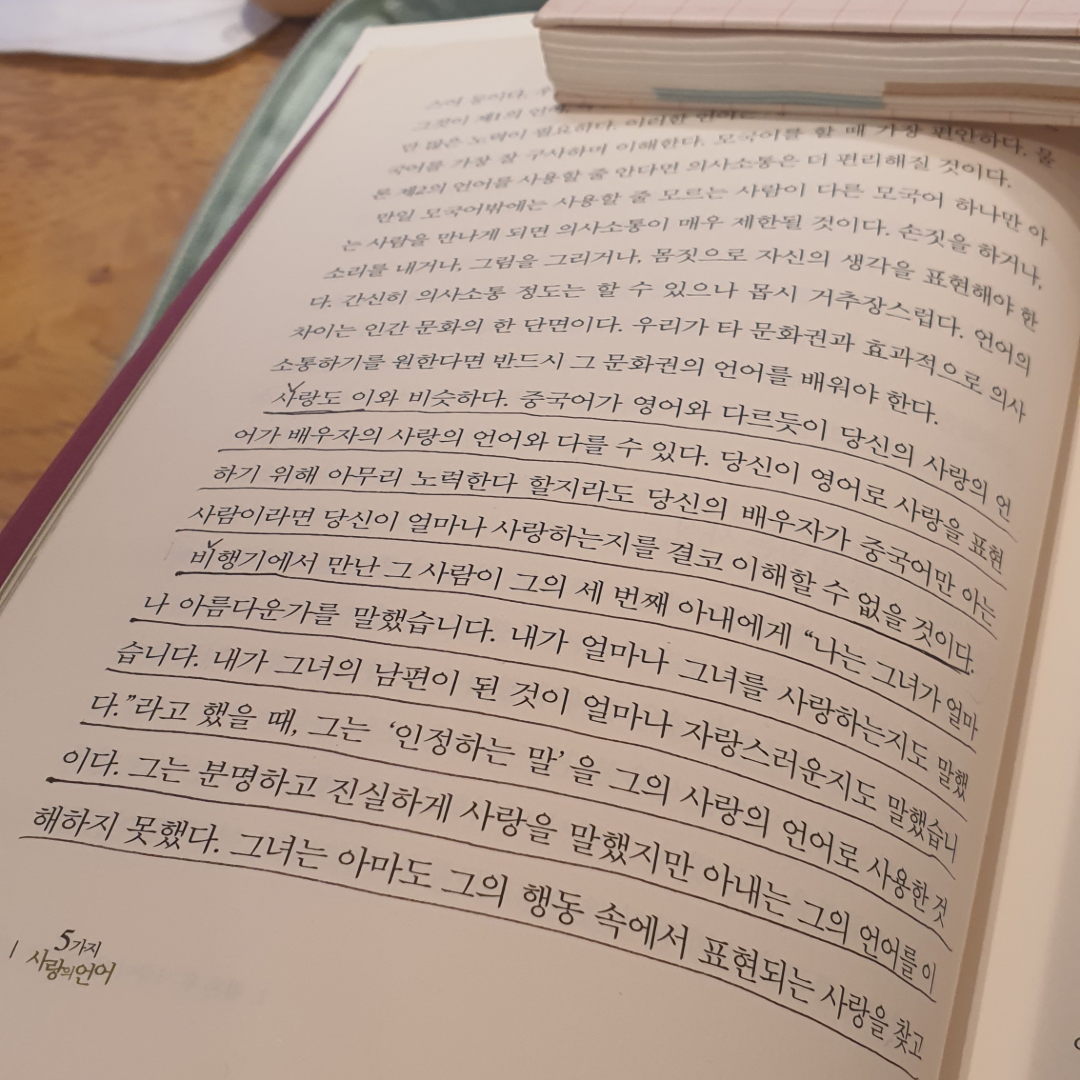 그것이 제1의 언어
더 많은 노력이 필요하다. 이러한 언어는
국어를 가장 잘 구사하며 이해한다. 모국어를 할 때 가장 편안하다. 물
론 제2의 언어를 사용할 줄 안다면 의사소통은 더 편리해질 것이다.
만일 모국어밖에는 사용할 줄 모르는 사람이 다른 모국어 하나만 아
는 사람을 만나게 되면 의사소통이 매우 제한될 것이다. 손짓을 하거나,
소리를 내거나, 그림을 그리거나, 몸짓으로 자신의 생각을 표현해야 한
다. 간신히 의사소통 정도는 할 수 있으나 몹시 거추장스럽다. 언어의
차이는 인간 문화의 한 단면이다. 우리가 타 문화권과 효과적으로 의사
소통하기를 원한다면 반드시 그 문화권의 언어를 배워야 한다.
사랑도 이와 비슷하다. 중국어가 영어와 다르듯이 당신의 사랑의 언
어가 배우자의 사랑의 언어와 다를 수 있다. 당신이 영어로 사랑을 표현
하기 위해 아무리 노력한다 할지라도 당신의 배우자가 중국어만 아는
사람이라면 당신이 얼마나 사랑하는지를 결코 이해할 수 없을 것이다.
비행기에서 만난 그 사람이 그의 세 번째 아내에게 “나는 그녀가 얼마
나 아름다운가를 말했습니다. 내가 얼마나 그녀를 사랑하는지도 말했
습니다. 내가 그녀의 남편이 된 것이 얼마나 자랑스러운지도 말했습니
다.”라고 했을 때, 그는 ‘인정하는 말’을 그의 사랑의 언어로 사용한 것
이다. 그는 분명하고 진실하게 사랑을 말했지만 아내는 그의 언어를 이
해하지 못했다. 그녀는 아마도 그의 행동 속에서 표현되는 사랑을 찾고
5가지
사랑의 언어